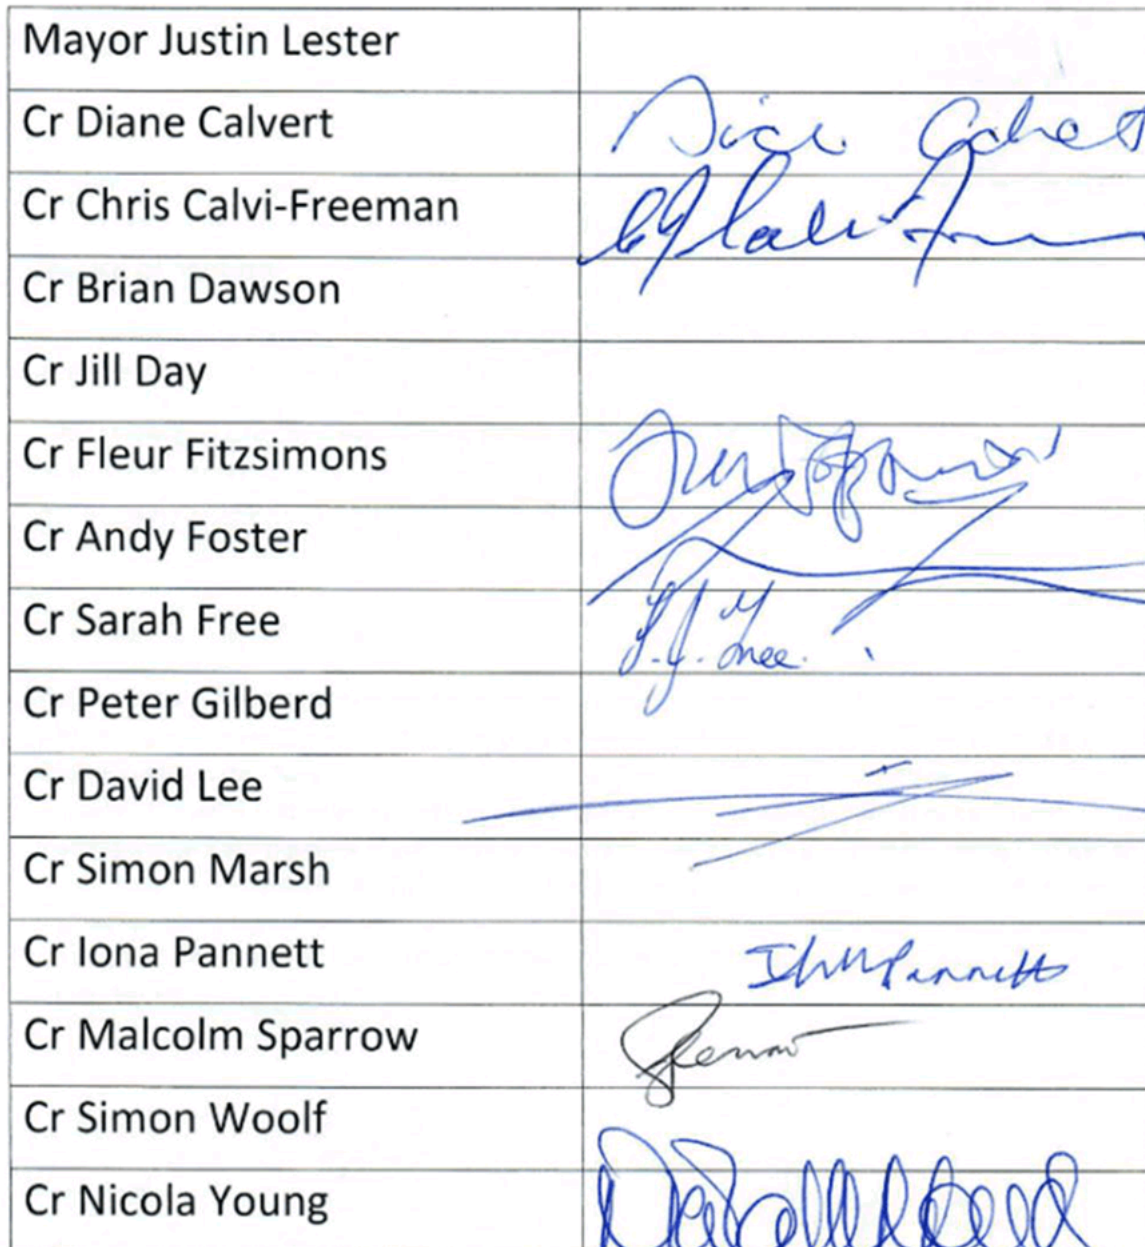 Mayor Justin Lester
Cr Diane Calvert
Cr Chris Calvi-Freeman
Cr Brian Dawson
Cr Jill Day
Cr Fleur Fitzsimons
Cr Andy Foster
Cr Sarah Free
S.J. Free.
Cr Peter Gilberd
Cr David Lee
Cr Simon Marsh
Cr Iona Pannett
Pannett
Cr Malcolm Sparrow
Cr Simon Woolf
Cr Nicola Young